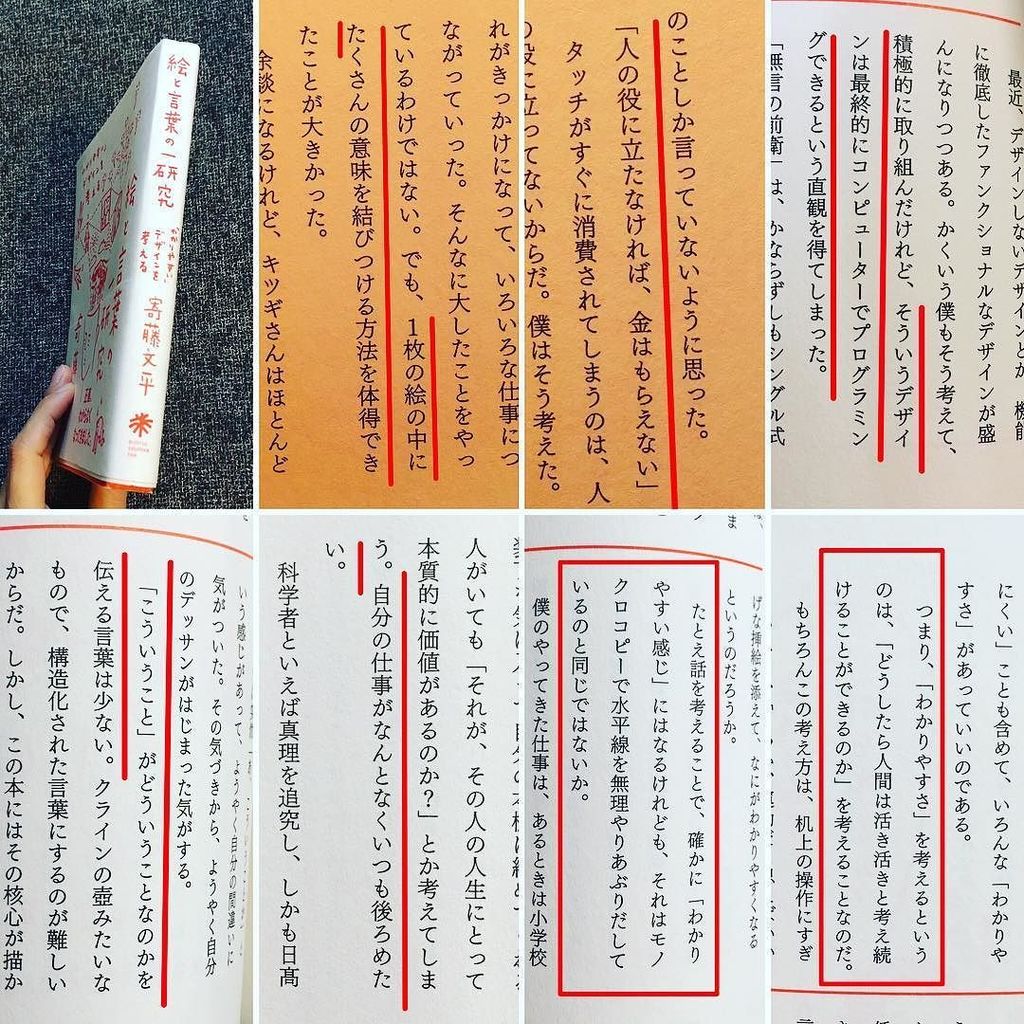 絵と言葉の一研究
わかりやすい
デザインを
考える
寄藤文平
れがきっかけになって、いろいろな仕事につ
ながっていった。そんなに大したことをやっ
ているわけではない。でも、1枚の絵の中に
たくさんの意味を結びつける方法を体得でき
たことが大きかった。
余談になるけれど、キツギさんはほとんど
のことしか言っていないように思った。
「人の役に立たなければ、金はもらえない」
タッチがすぐに消費されてしまうのは、人
の役に立ってないからだ。僕はそう考えた。
最近、デザインしないデザインとか、機能
に徹底したファンクショナルなデザインが盛
んになりつつある。かくいう僕もそう考えて、
積極的に取り組んだけれど、そういうデザイ
ンは最終的にコンピューターでプログラミン
グできるという直観を得てしまった。
「無言の前衛」は、かならずしもシングル式
いう感じがあって、ようやく自分の間違いに
気がついた。その気づきから、ようやく自分
のデッサンがはじまった気がする。
「こういうこと」がどういうことなのかを
伝える言葉は少ない。クラインの壺みたいな
もので、構造化された言葉にするのが難しい
からだ。しかし、この本にはその核心が描か
人がいても「それが、その人の人生にとって
本質的に価値があるのか?」とか考えてしま
う。自分の仕事がなんとなくいつも後ろめた
い。
科学者といえば真理を追究し、しかも日髙
げな挿絵を添えて、なにがわかりやすくなる
というのだろうか。
たとえ話を考えることで、確かに「わかり
やすい感じ」にはなるけれども、それはモノ
クロコピーで水平線を無理やりあぶりだして
いるのと同じではないか。
僕のやってきた仕事は、あるときは小学校
にくい」ことも含めて、いろんな「わかりや
すさ」があっていいのである。
つまり、「わかりやすさ」を考えるという
のは、「どうしたら人間は活き活きと考え続
けることができるのか」を考えることなのだ。
もちろんこの考え方は、机上の操作にすぎ